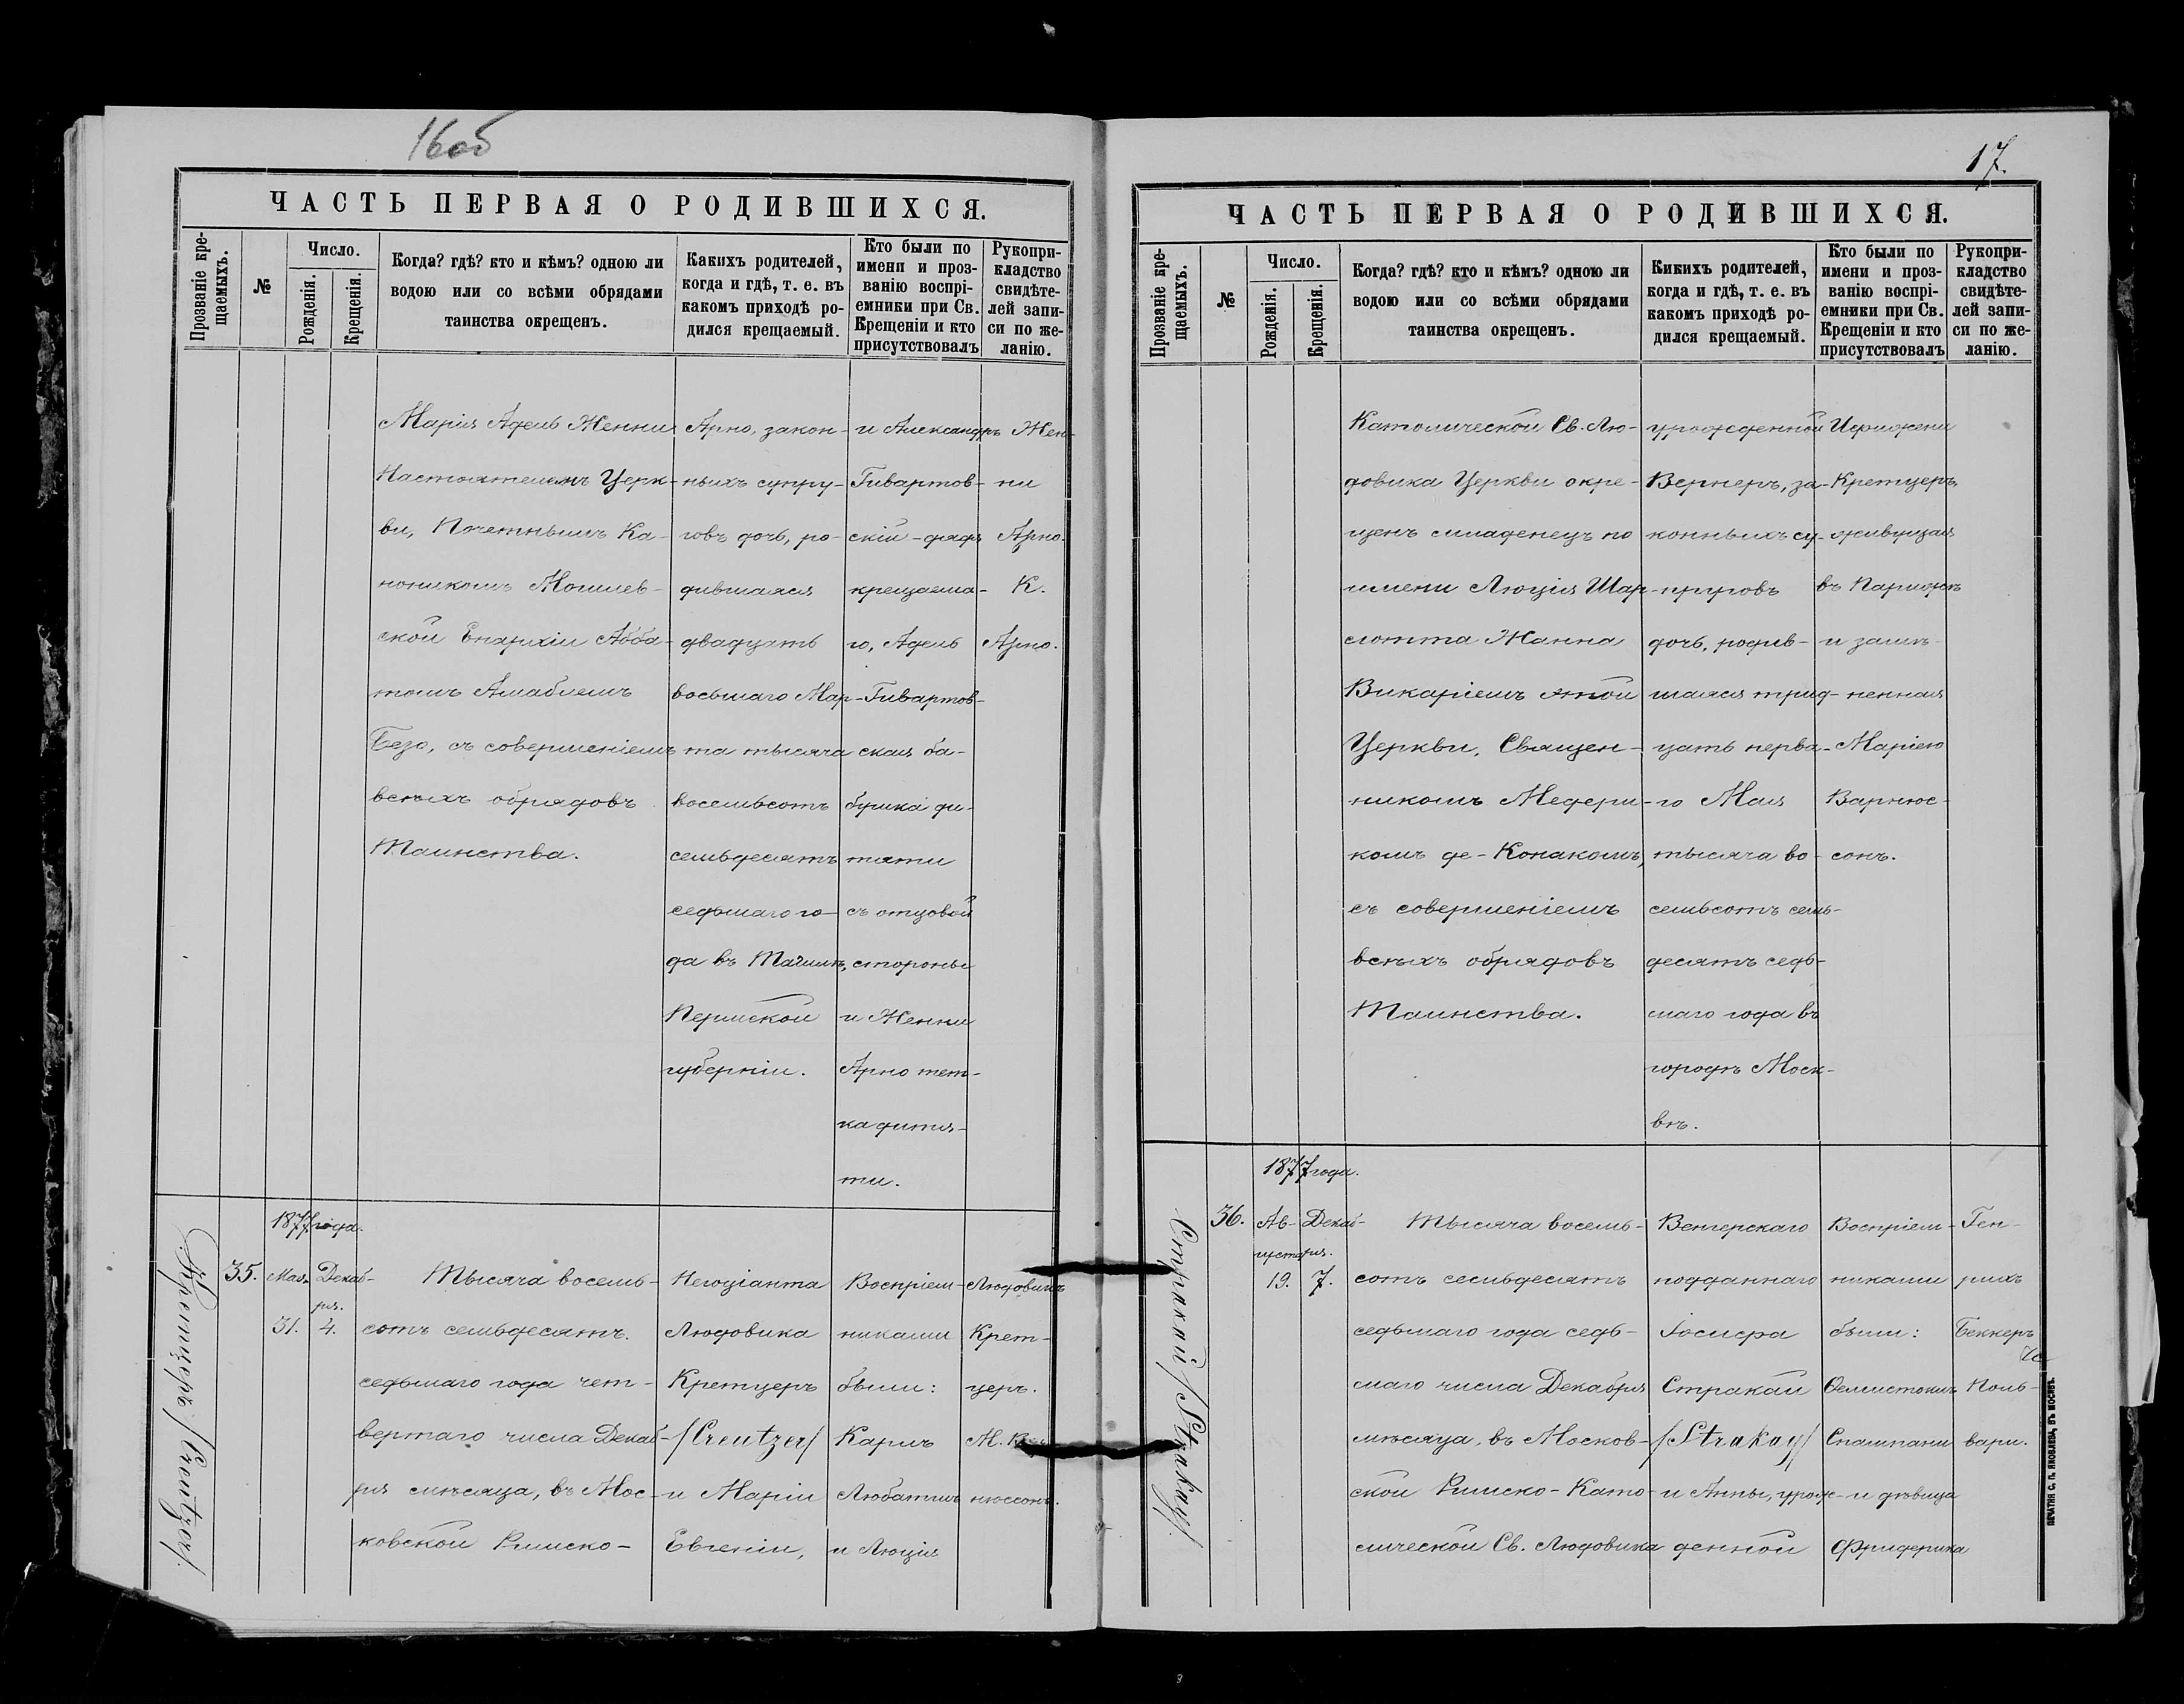 16об
ЧАСТЬ ПЕРВАЯ О РОДИВШИХСЯ.
Прозваніе кре-
щаемыхъ.
№
Число.
Рожденія.
Крещенія.
Когда? гдѣ? кто и кѣмъ? одною ли
водою или со всѣми обрядами
таинства окрещенъ.
Какихъ родителей,
когда и гдѣ, т. е. въ
какомъ приходѣ ро-
дился крещаемый.
Кто были по
имени и проз-
ванію воспрі-
емники при Св.
Крещеніи и кто
присутствовалъ
Рукопри-
кладство
свидѣте-
лей запи-
си по же-
ланію.
Марія Адель Женни
Настоятелемъ Церк-
ви, Почетнымъ Ка-
ноникомъ Могилев-
ской Епархіи Абба-
томъ Амаблемъ
Безо, съ совершеніемъ
всѣхъ обрядовъ
Таинства.
Арно, закон-
ныхъ супру-
говъ дочь, ро-
дившаяся
двадцать
восьмаго Мар-
та тысяча
восемьсотъ
семьдесятъ
седьмаго го-
да въ Тагилѣ,
Пермской
губерніи.
и Александръ
Гивартов-
скій-дядя
крещаема-
го, Адель
Гивартов-
ская ба-
бушка ди-
тяти
съ отцовой
стороны
и Женни
Арно тет-
ка дитя-
ти.
Жен-
ни
Арно.
К.
Арно.
Кретцеръ /Creutzer/
35.
1877 года.
Мая
31.
Декаб-
ря.
4.
Тысяча восемь-
сотъ семьдесятъ
седьмаго года чет-
вертаго числа Декаб-
ря мѣсяца, въ Мос-
ковской Римско-
Негоціанта
Людовика
Кретцеръ
/Creutzer/
и Маріи
Евгеніи,
Воспріем-
никами
были:
Карлъ
Любатинъ
и Люція
Людовикъ
Крет-
церъ.
нюссонъ.
17.
ЧАСТЬ ПЕРВАЯ О РОДИВШИХСЯ.
Прозваніе кре-
щаемыхъ.
№
Число.
Рожденія.
Крещенія.
Когда? гдѣ? кто и кѣмъ? одною ли
водою или со всѣми обрядами
таинства окрещенъ.
Кикихъ родителей,
когда и гдѣ, т. е. въ
какомъ приходѣ ро-
дился крещаемый.
Кто были по
имени и проз-
ванію воспрі-
емники при Св.
Крещеніи и кто
присутствовалъ
Рукопри-
кладство
свидѣте-
лей запи-
си по же-
ланію.
Католической Св. Лю-
довика Церкви окре-
щенъ младенецъ по
имени Люція Шар-
лотта Жанна
Викаріемъ этой
Церкви, Священ-
никомъ Медери-
комъ де-Конакомъ,
съ совершеніемъ
всѣхъ обрядовъ
Таинства.
урожденной
Вернеръ, за-
конныхъ су-
пруговъ
дочь, родив-
шаяся трид-
цать перва-
го Мая
тысяча во-
семьсотъ семь-
десятъ седь-
маго года въ
городѣ Моск-
вѣ.
Кретцеръ,
живущая
въ Парижѣ
и замѣ-
ненная
Маріею
Варнюс-
сонъ.
Стракай /Strakay/
36.
1877 года.
Ав-
густа
19.
Декаб-
ря.
7.
Тысяча восемь-
сотъ семьдесятъ
седьмаго года седь-
маго числа Декабря
мѣсяца, въ Москов-
ской Римско-Като-
лической Св. Людовика
Венгерскаго
подданнаго
Іосифа
Стракай
/Strakay/
и Анны, урож-
денной
Воспріем-
никами
были:
Ѳемистоклъ
Спампани
и дѣвица
Фридерика
Ген-
рихъ
Беккеръ
Поль-
вари.
ПЕЧАТНЯ С. П. ЯКОВЛЕВА, ВЪ МОСКВѢ.